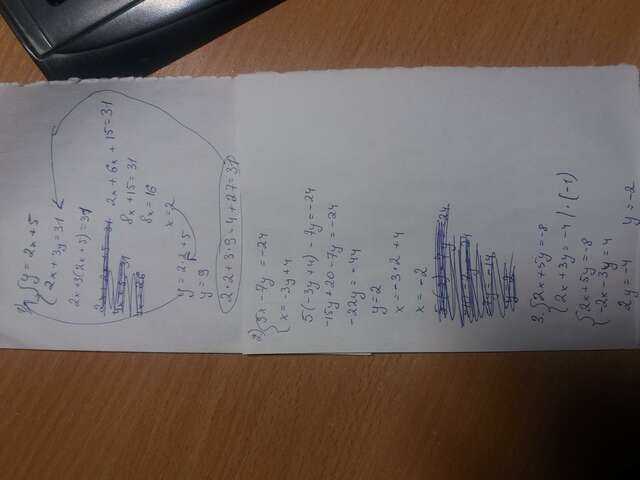 1) { y = 2x + 5
2x + 3y = 31
2x + 3(2x + 5) = 31
2x + 6x + 15 = 31
8x + 15 = 31
8x = 16
x = 2
y = 2 · 2 + 5
y = 9
2 · 2 + 3 · 9 = 4 + 27 = 31
2) { 5x - 7y = -24
x = -3y + 4
5(-3y + 4) - 7y = -24
-15y + 20 - 7y = -24
-22y = -44
y = 2
x = -3 · 2 + 4
x = -2
3. { 2x + 5y = -8
2x + 3y = -4 / · (-1)
{ 2x + 5y = -8
-2x - 3y = 4
2y = -4
y = -2